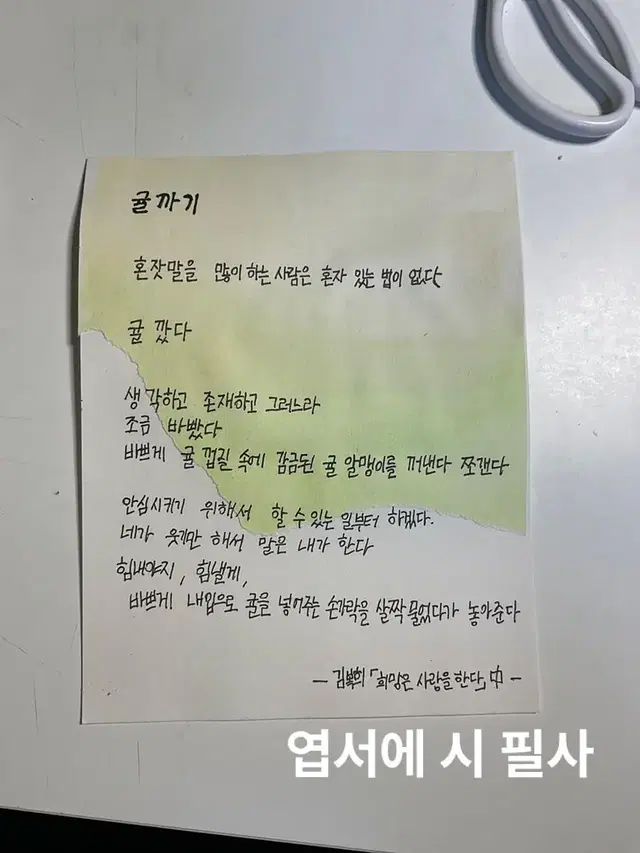 귤까기
혼잣말을 많이 하는 사람은 혼자 있는 법이 없다
귤 깠다
생각하고 존재하고 그러느라
조금 바빴다
바쁘게 귤 껍질 속에 감금된 귤 알맹이를 꺼낸다 쪼갠다
안심시키기 위해서 할 수 있는 일부터 하겠다.
네가 웃기만 해서 말은 내가 한다
힘내야지, 힘낼게,
바쁘게 내입으로 귤을 넣어주는 손가락을 살짝 물었다가 놓아준다
— 김복희 「희망은 사랑을 한다」 中 —
엽서에 시 필사